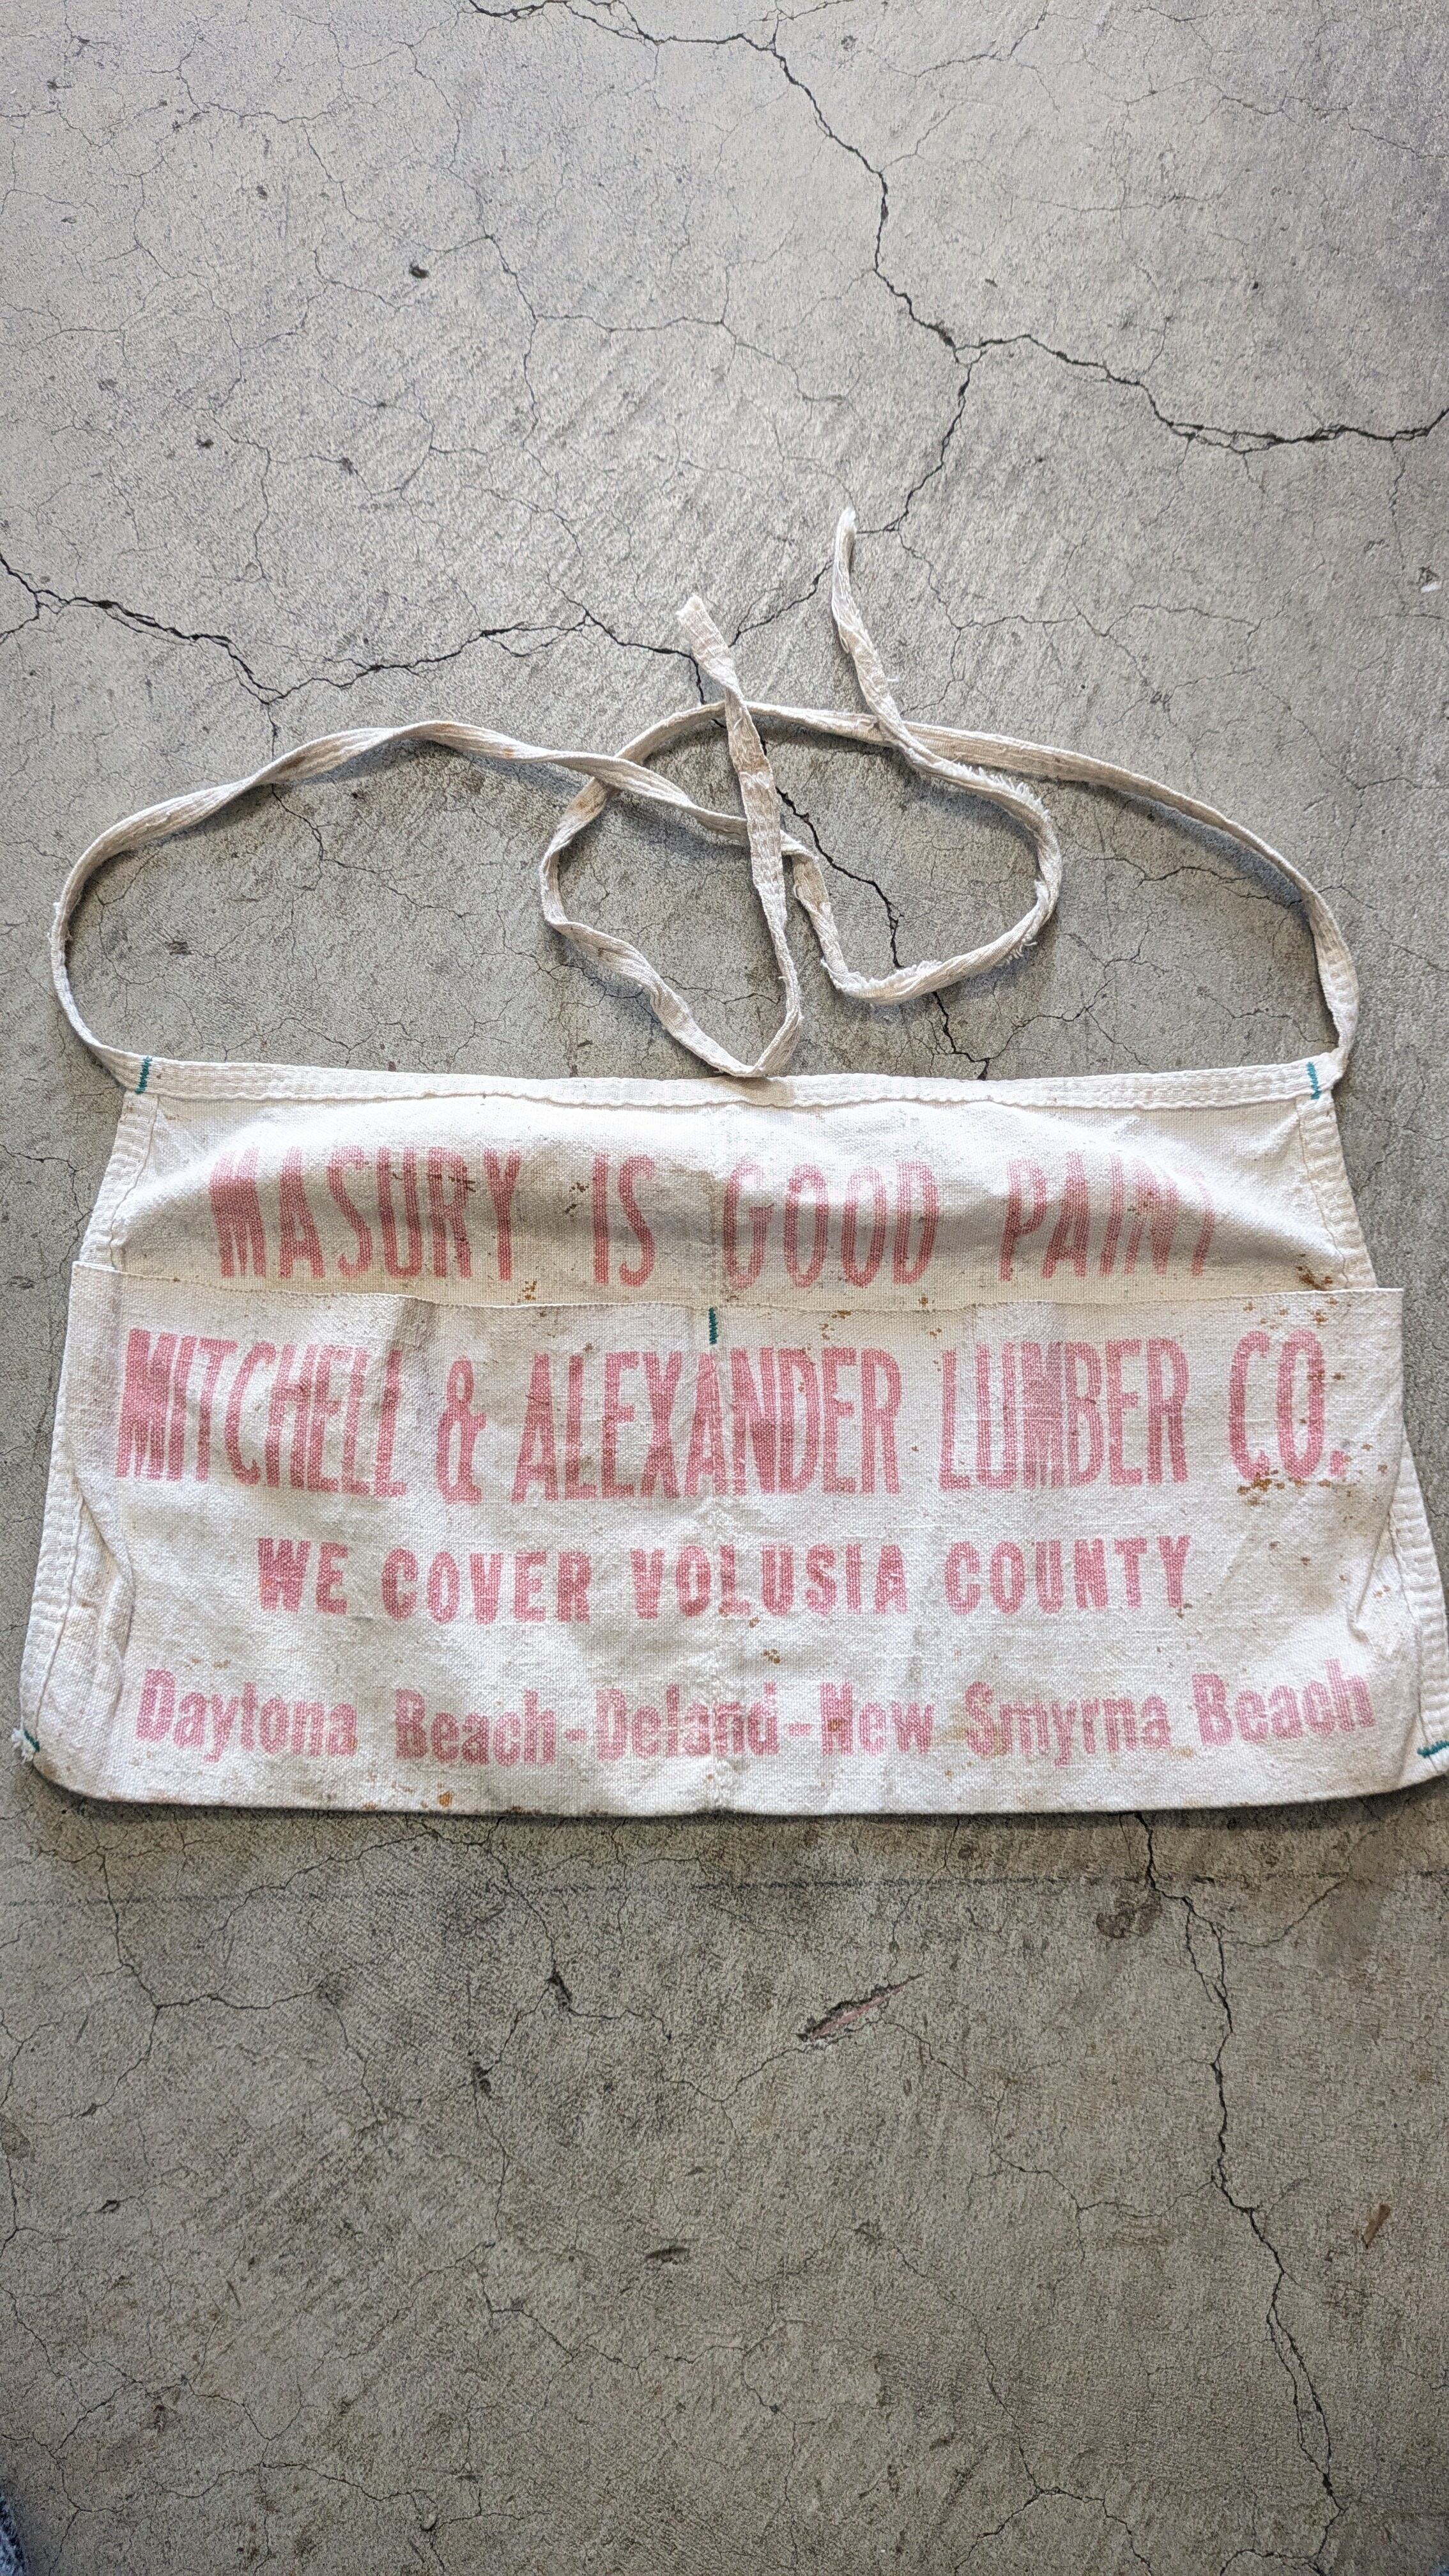 MASURY IS GOOD PAINT
MITCHELL & ALEXANDER LUMBER CO.
WE COVER VOLUSIA COUNTY
Daytona Beach-Deland-New Smyrna Beach